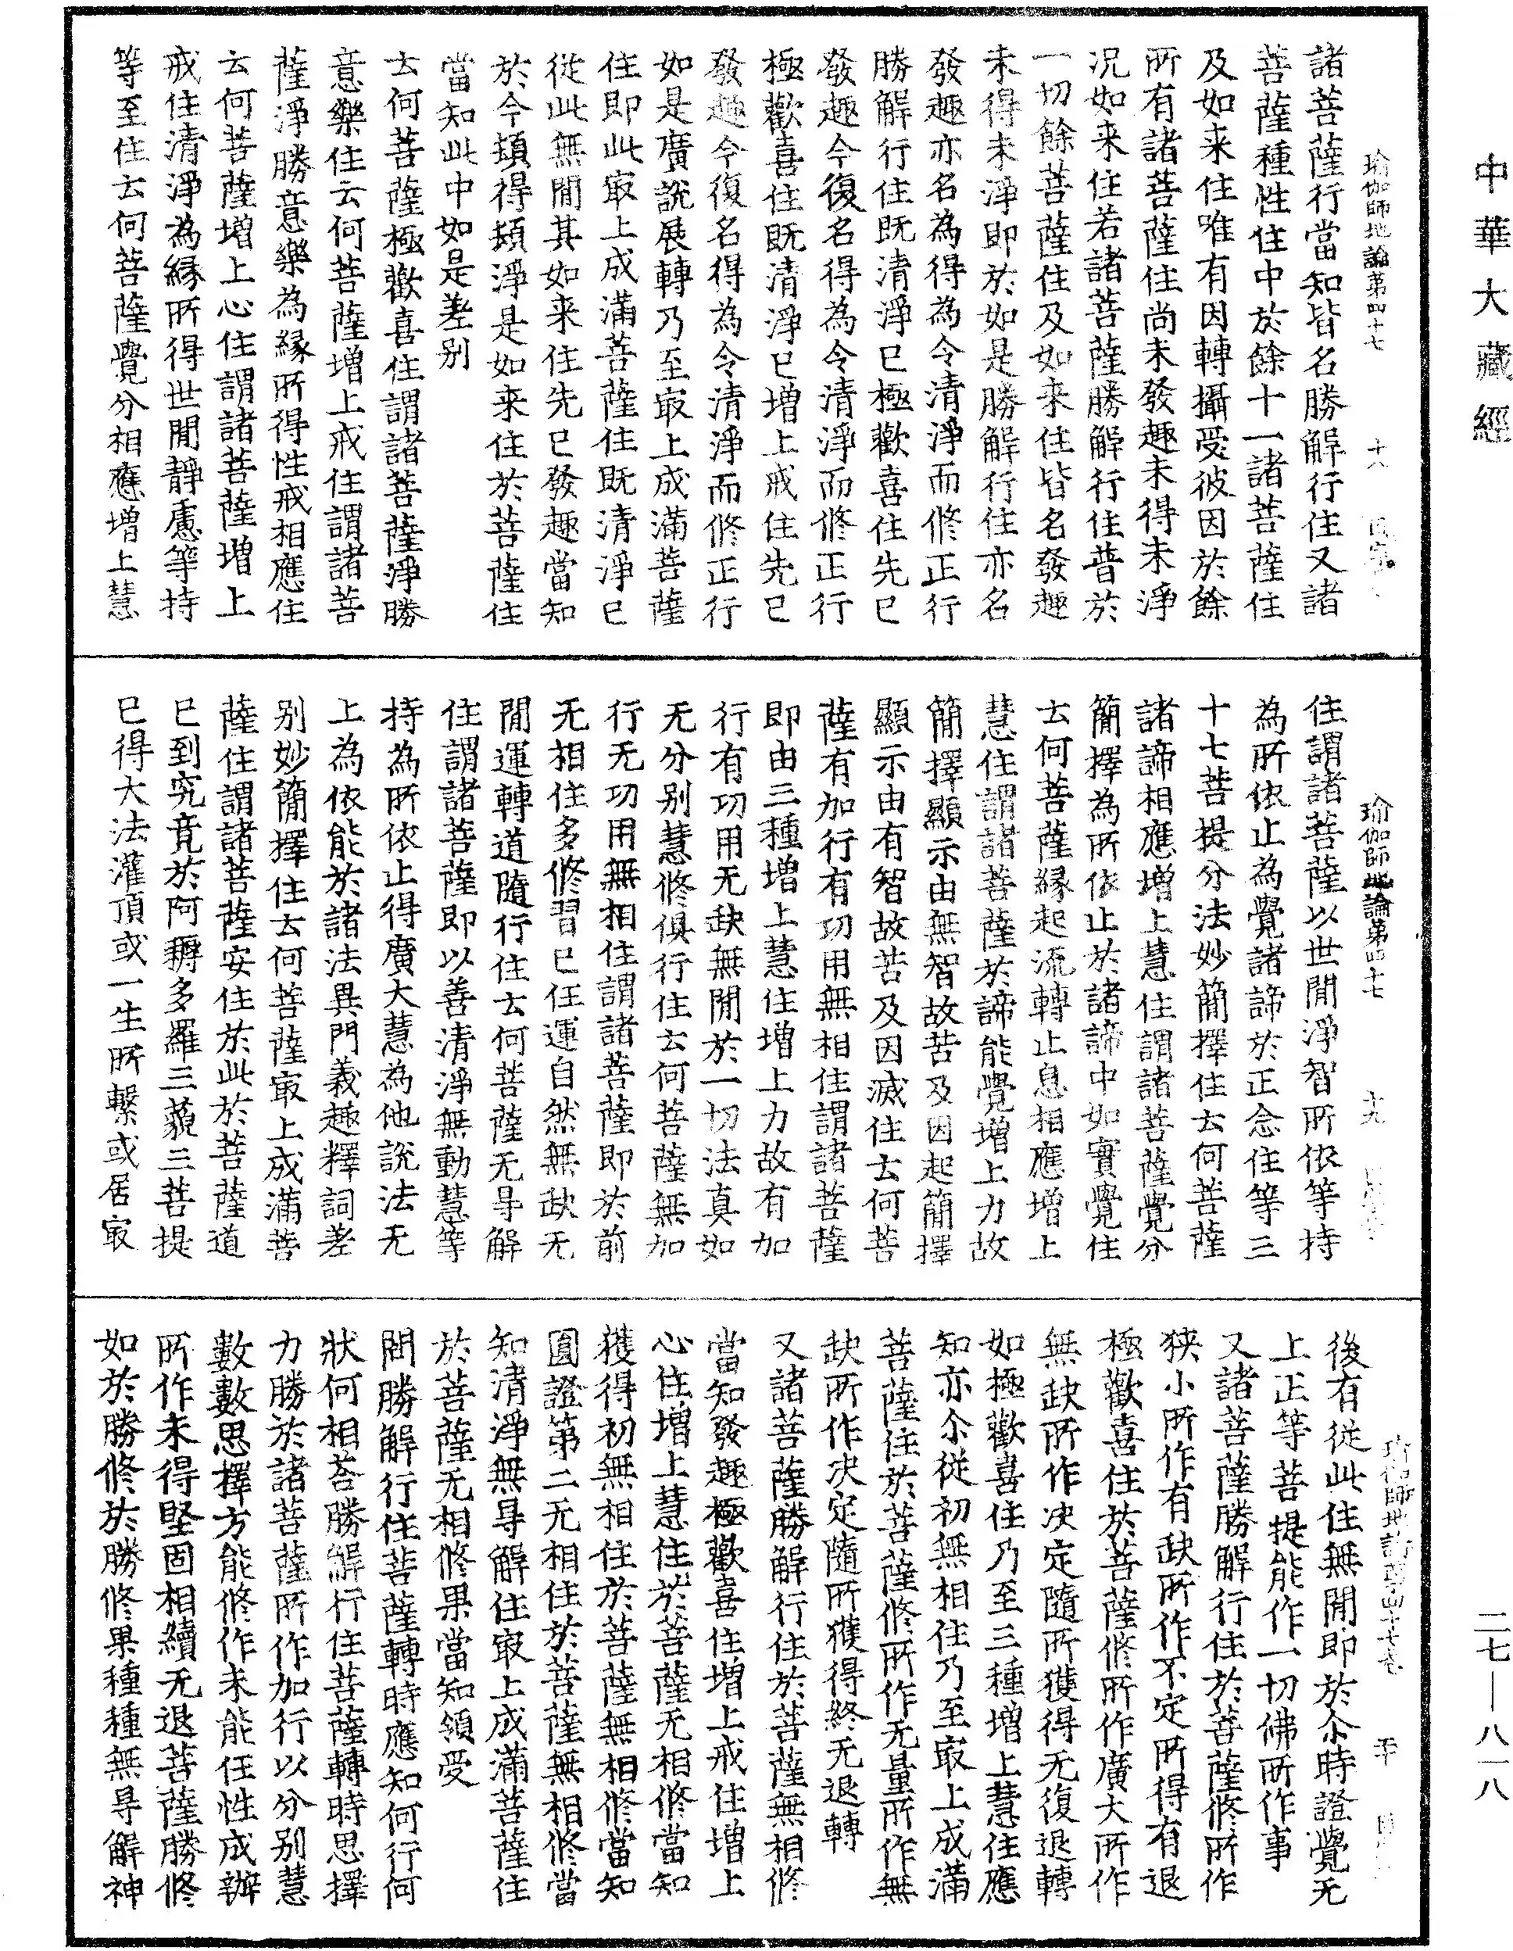 中華大藏經
二七—八一八
瑜伽師地論第四十七
十八
諸菩薩行當知皆名勝解行住又諸
菩薩種性住中於餘十一諸菩薩住
及如来住唯有因轉攝受彼因於餘
所有諸菩薩住尚未發趣未得未淨
况如来住若諸菩薩勝解行住普於
一切餘菩薩住及如来住皆名發趣
未得未淨即於如是勝解行住亦名
發趣亦名為得為令清淨而修正行
勝解行住既清淨已極歡喜住先已
發趣今復名得為令清淨而修正行
極歡喜住既清淨已增上戒住先已
發趣今復名得為令清淨而修正行
如是廣說展轉乃至㝡上成滿菩薩
住即此㝡上成滿菩薩住既清淨已
從此無間其如来住先已發趣當知
於今頓得頓淨是如来住於菩薩住
當知此中如是差别
云何菩薩極歡喜住謂諸菩薩淨勝
意樂住云何菩薩增上戒住謂諸菩
薩淨勝意樂為縁所得性戒相應住
云何菩薩增上心住謂諸菩薩增上
戒住清淨為縁所得世間靜慮等持
等至住云何菩薩覺分相應增上慧
瑜伽師地論第四十七
十九
住謂諸菩薩以世間淨智所依等持
為所依止為覺諸諦於正念住等三
十七菩提分法妙簡擇住云何菩薩
諸諦相應增上慧住謂諸菩薩覺分
簡擇為所依止於諸諦中如實覺住
云何菩薩緣起流轉止息相應增上
慧住謂諸菩薩於諦能覺增上力故
簡擇顯示由無智故苦及因起簡擇
顯示由有智故苦及因滅住云何菩
薩有加行有功用無相住謂諸菩薩
即由三種增上慧住增上力故有加
行有功用无缺無間於一切法真如
无分别慧修俱行住云何菩薩無加
行无功用無相住謂諸菩薩即於前
无相住多修習已任運自然無缺无
間運轉道隨行住云何菩薩无㝵解
住謂諸菩薩即以善清淨無動慧等
持為所依止得廣大慧為他說法无
上為依能於諸法異門義趣釋詞差
别妙簡擇住云何菩薩㝡上成滿菩
薩住謂諸菩薩安住於此於菩薩道
已到究竟於阿耨多羅三藐三菩提
已得大法灌頂或一生所繫或居㝡
二十
後有從此住無間即於尒時證覺无
上正等菩提能作一切佛所作事
又諸菩薩勝解行住於菩薩修所作
狹小所作有缺所作不定所得有退
極歡喜住於菩薩修所作廣大所作
無缺所作决定隨所獲得无復退轉
如極歡喜住乃至三種增上慧住應
知亦尒從初無相住乃至㝡上成滿
菩薩住於菩薩修所作无量所作無
缺所作决定隨所獲得終无退轉
又諸菩薩勝解行住於菩薩無相修
當知發趣極歡喜住增上戒住增上
心住增上慧住於菩薩无相修當知
獲得初無相住於菩薩無相修當知
圓證第二无相住於菩薩無相修當
知清淨無㝵解住㝡上成滿菩薩住
於菩薩无相修果當知領受
問勝解行住菩薩轉時應知何行何
狀何相荅勝解行住菩薩轉時思擇
力勝於諸菩薩所作加行以分别慧
數數思擇方能修作未能任性成辦
所作未得堅固相續无退菩薩勝修
如於勝修於勝修果種種無㝵解神